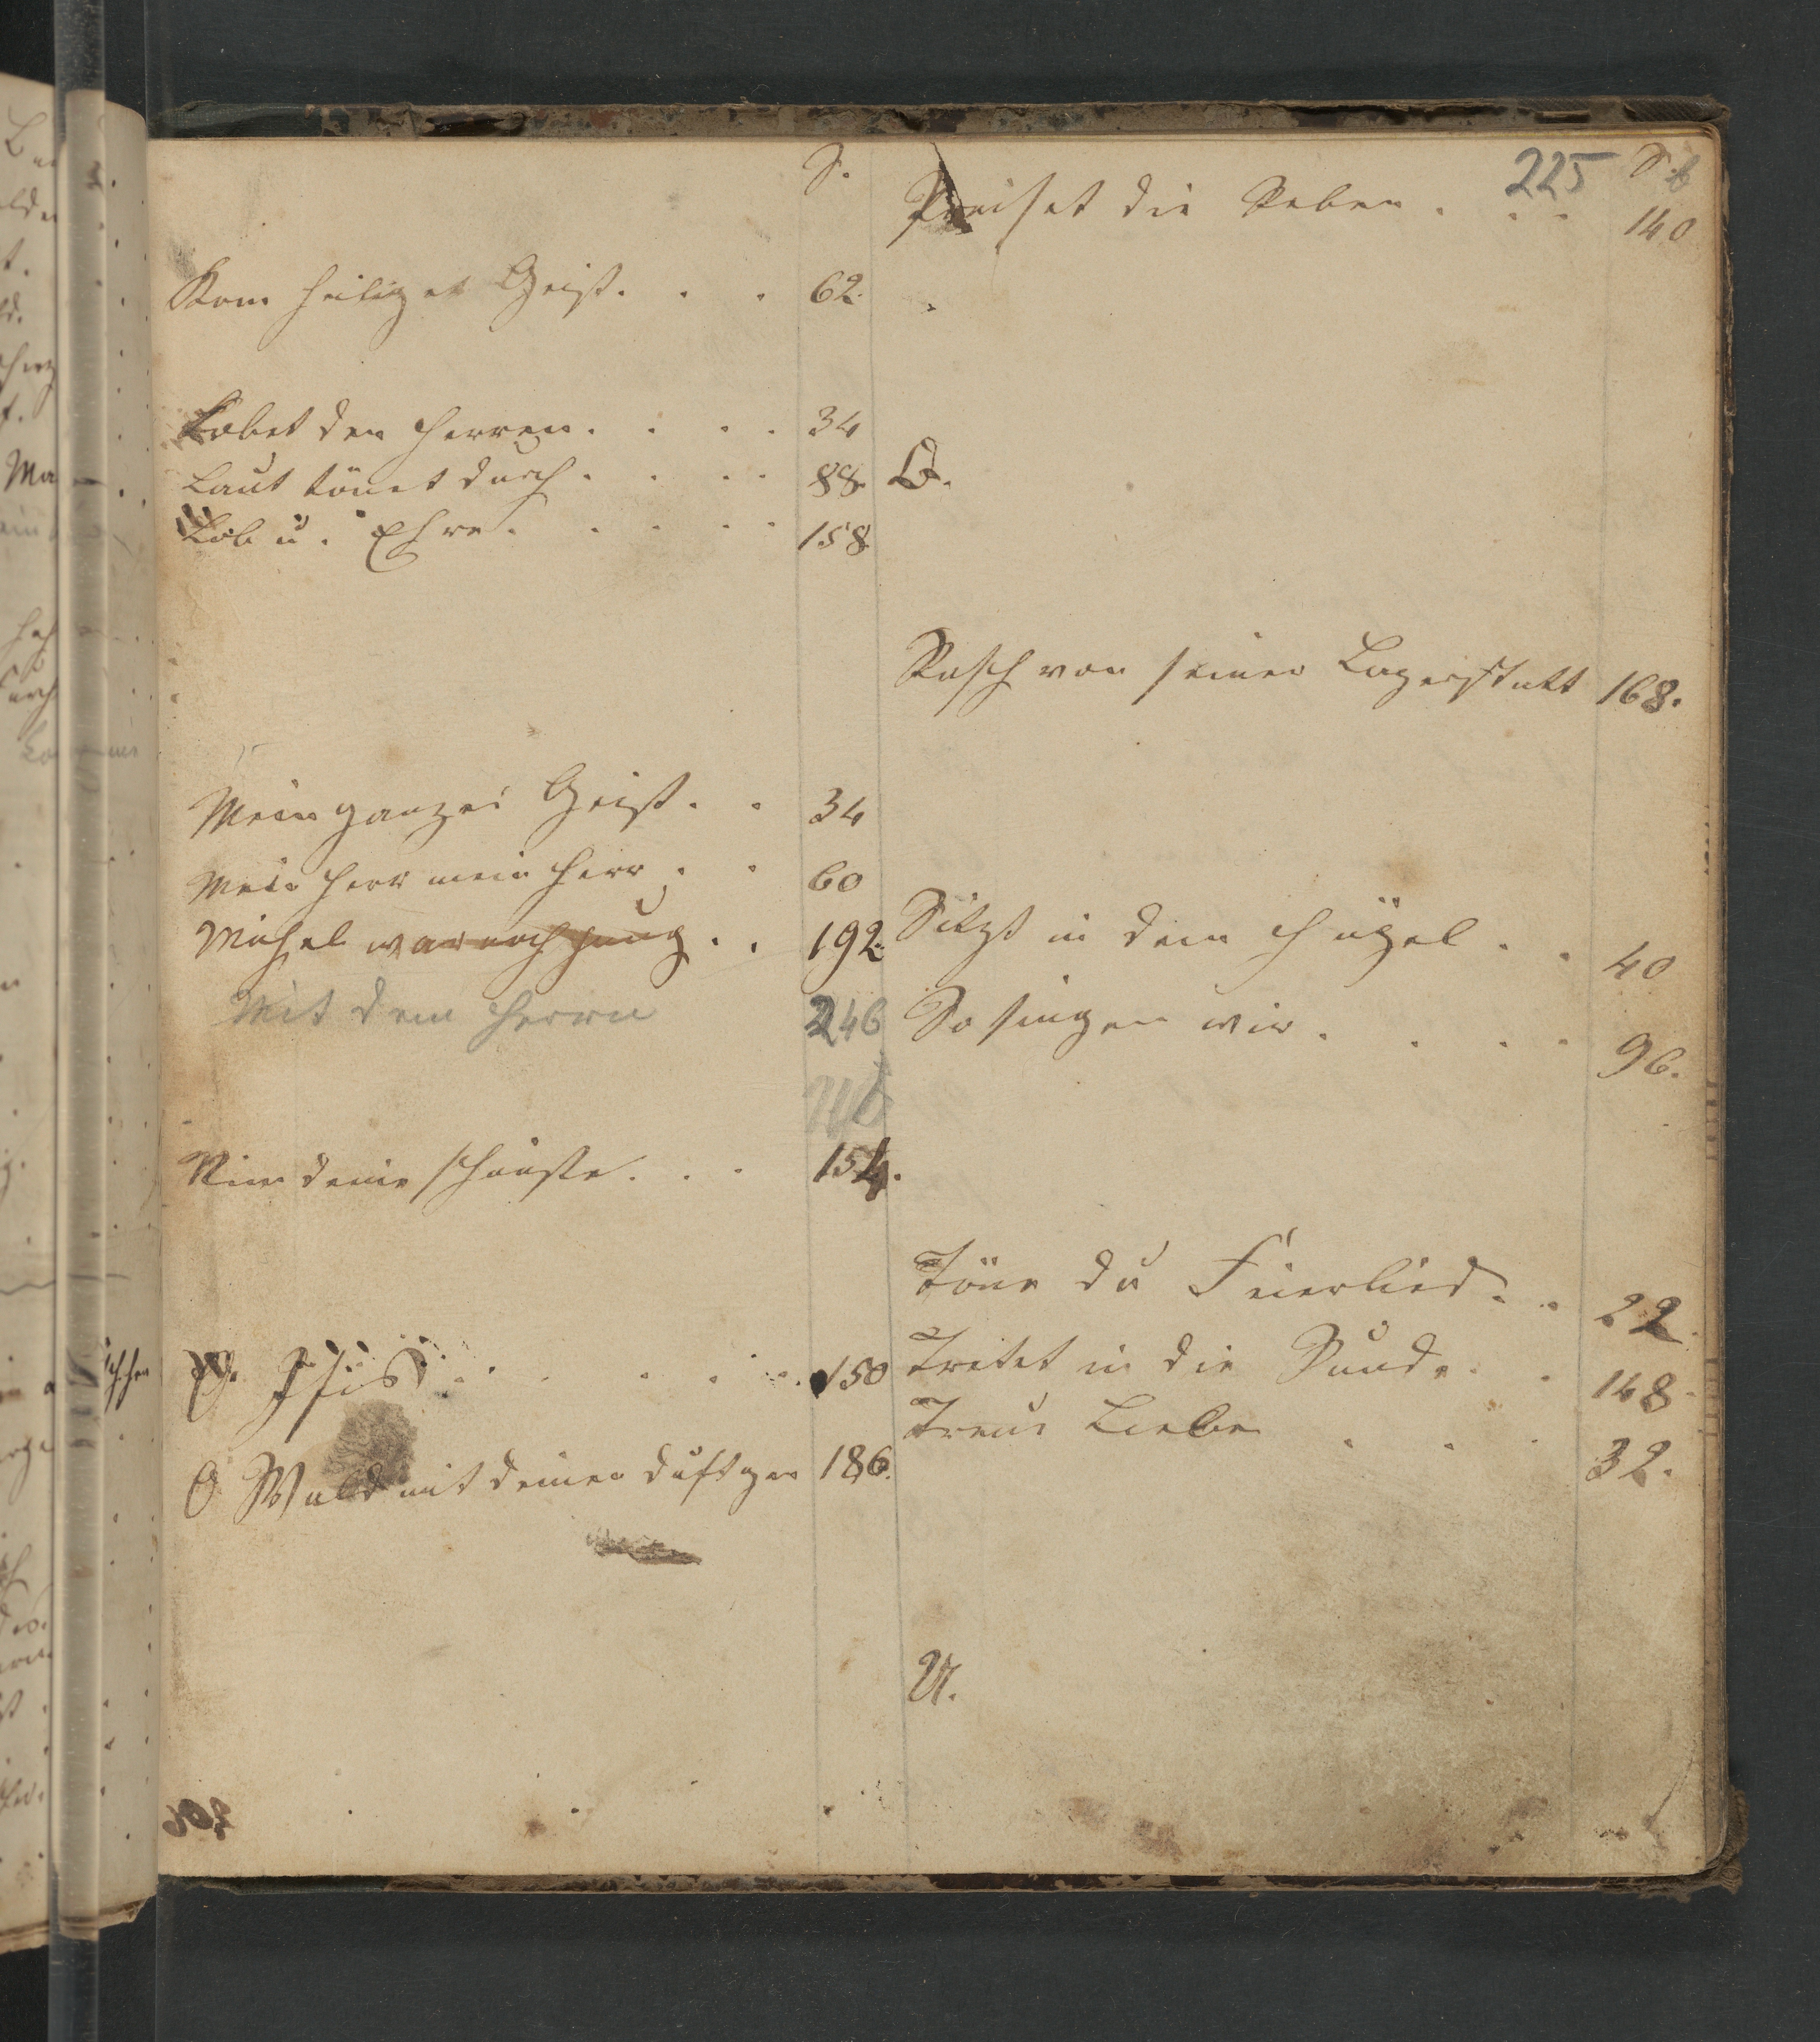 S.
Kom heiliger Geist. . . 62.
Lobet den Herren. . . . 34
Laut tönet durch. . . . 88.
Lob u. Ehre. . . . . 158.
Mein ganzer Geist. . . 34
Mein Herr mein Herr. . . 60
Michel war noch jung. . . 192.
Mit dem Herrn 246
Nim deine 154.
O. Isis . . . . . . 150
O Wald mit deinen duftgen 186.
225
S.
Preiset die Reben. . . . 140
Q.
Rasch von seiner Lagerstatt 168.
Sitzt in dem Hügel. . . 40
So singen wir. . . . 96.
Töne du Feierlied. . . 22.
Tretet in die Runde. . . 148.
Treue Liebe . . . 32.
U.